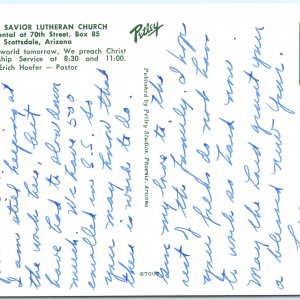 SAVIOR LUTHERAN CHURCH
ental at 70th Street, Box 85
Scottsdale, Arizona
world tomorrow, We preach Christ
ship Service at 8:30 and 11:00.
Erich Hoefer — Pastor
Petley
Published by Petley Studios, Phoenix, Arizona
I am still helping at
the work here, but
have had to slow down
much. We have 500
enrolled in S.S. So
you may know that
there is work to do.
my love to the
rest of the family. I hope
your folks do not have
to work too
May the Lord grant you
a blessed New Year.